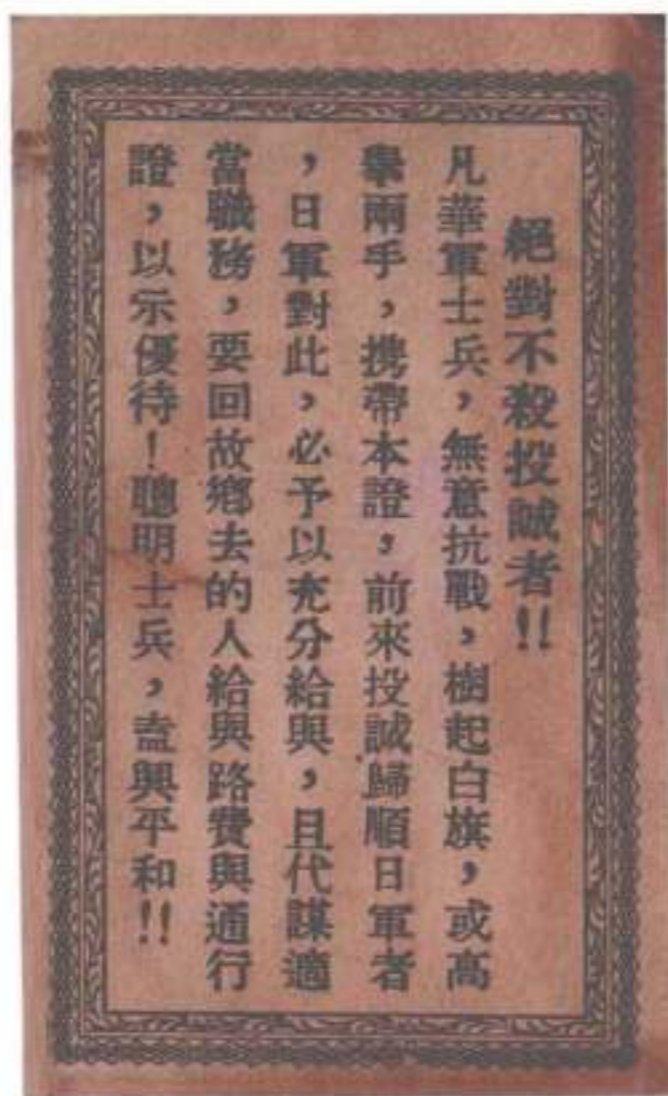 絕對不殺投誠者!!
凡華軍士兵，無意抗戰，樹起白旗，或高
舉兩手，携帶本證，前來投誠歸順日軍者
，日軍對此，必予以充分給與，且代謀適
當職務，要回故鄉去的人給與路費與通行
證，以示優待！聰明士兵，盍興平和!!